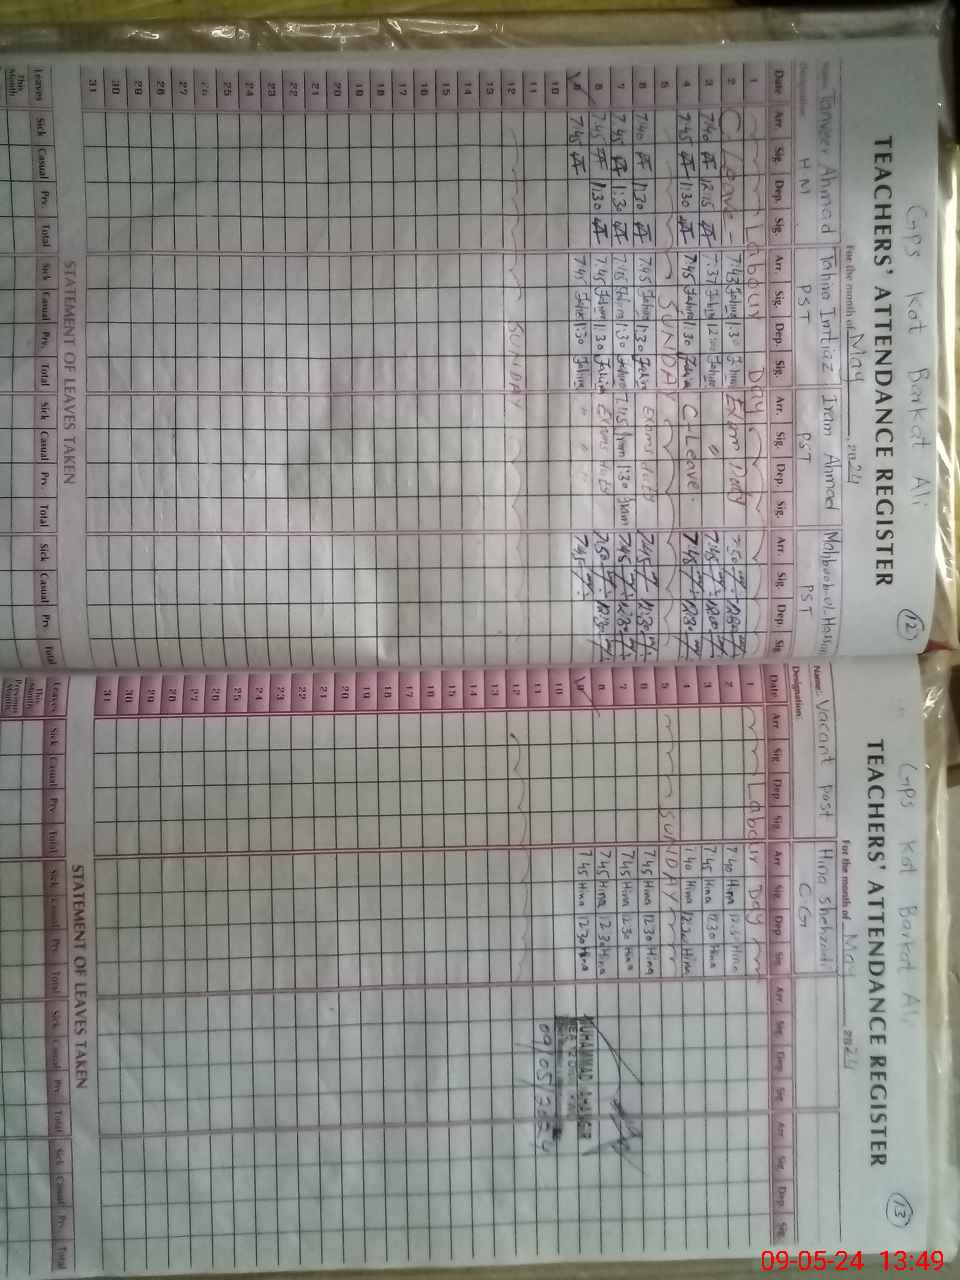 GPS Kot Barkat Ali
12
TEACHERS' ATTENDANCE REGISTER
For the month of May, 2024
Tanveer Ahmad Tahira Imtiaz Iram Ahmad Mahboob-ul-Hassan
Designation: HM PST PST PST
Date Arr. Sig. Dep. Sig. Arr. Sig. Dep. Sig. Arr. Sig. Dep. Sig. Arr. Sig. Dep. Sig.
1 Labour Day
2 C Leave 7:43 Tahira 1:30 Tahira Exam Duty 7:50 12:30
3 7:40 12:15 7:37 Tahira Tahira 7:45 12:00
4 7:45 1:30 7:45 Tahira 1:30 Tahira C-Leave. 7:45 12:30
5 SUNDAY
6 7:40 1:30 7:45 Tahira 1:30 Tahira Exams duty 7:45 12:30
7 7:45 1:30 7:45 Tahira 1:30 Tahira 7:45 Iram 1:30 Iram 7:45 12:30
8 7:45 1:30 7:45 Tahira 1:30 Tahira Exams duty 7:50 12:30
9 7:45 7:45 Tahira 1:30 Tahira " " " 7:45
10
11
12 SUNDAY
13
14
15
16
17
18
19
20
21
22
23
24
25
26
27
28
29
30
31
STATEMENT OF LEAVES TAKEN
Leaves Sick Casual Prv. Total Sick Casual Prv. Total Sick Casual Prv. Total Sick Casual Prv. Total
This Month
GPS Kot Barkat Ali
13
TEACHERS' ATTENDANCE REGISTER
For the month of May, 2024
Name: Vacant post Hina Shehzadi
Designation: C.G
Date Arr. Sig. Dep. Sig. Arr. Sig. Dep. Sig. Arr. Sig. Dep. Sig. Arr. Sig. Dep. Sig.
1 Labour Day
2 7:40 Hina 12:30 Hina
3 7:45 Hina 12:30 Hina
4 7:40 Hina 12:30 Hina
5 SUNDAY
6 7:45 Hina 12:30 Hina
7 7:45 Hina 12:30 Hina
8 7:45 Hina 12:30 Hina
9 7:45 Hina 12:30 Hina
10
11
12
13
14
15
16
17
18
19
20
21
22
23
24
25
26
27
28
29
30
31
MUHAMMAD
09/05/2024
STATEMENT OF LEAVES TAKEN
Leaves Sick Casual Prv. Total Sick Casual Prv. Total Sick Casual Prv. Total Sick Casual Prv. Total
This Month
Previous Month
09-05-24 13:49